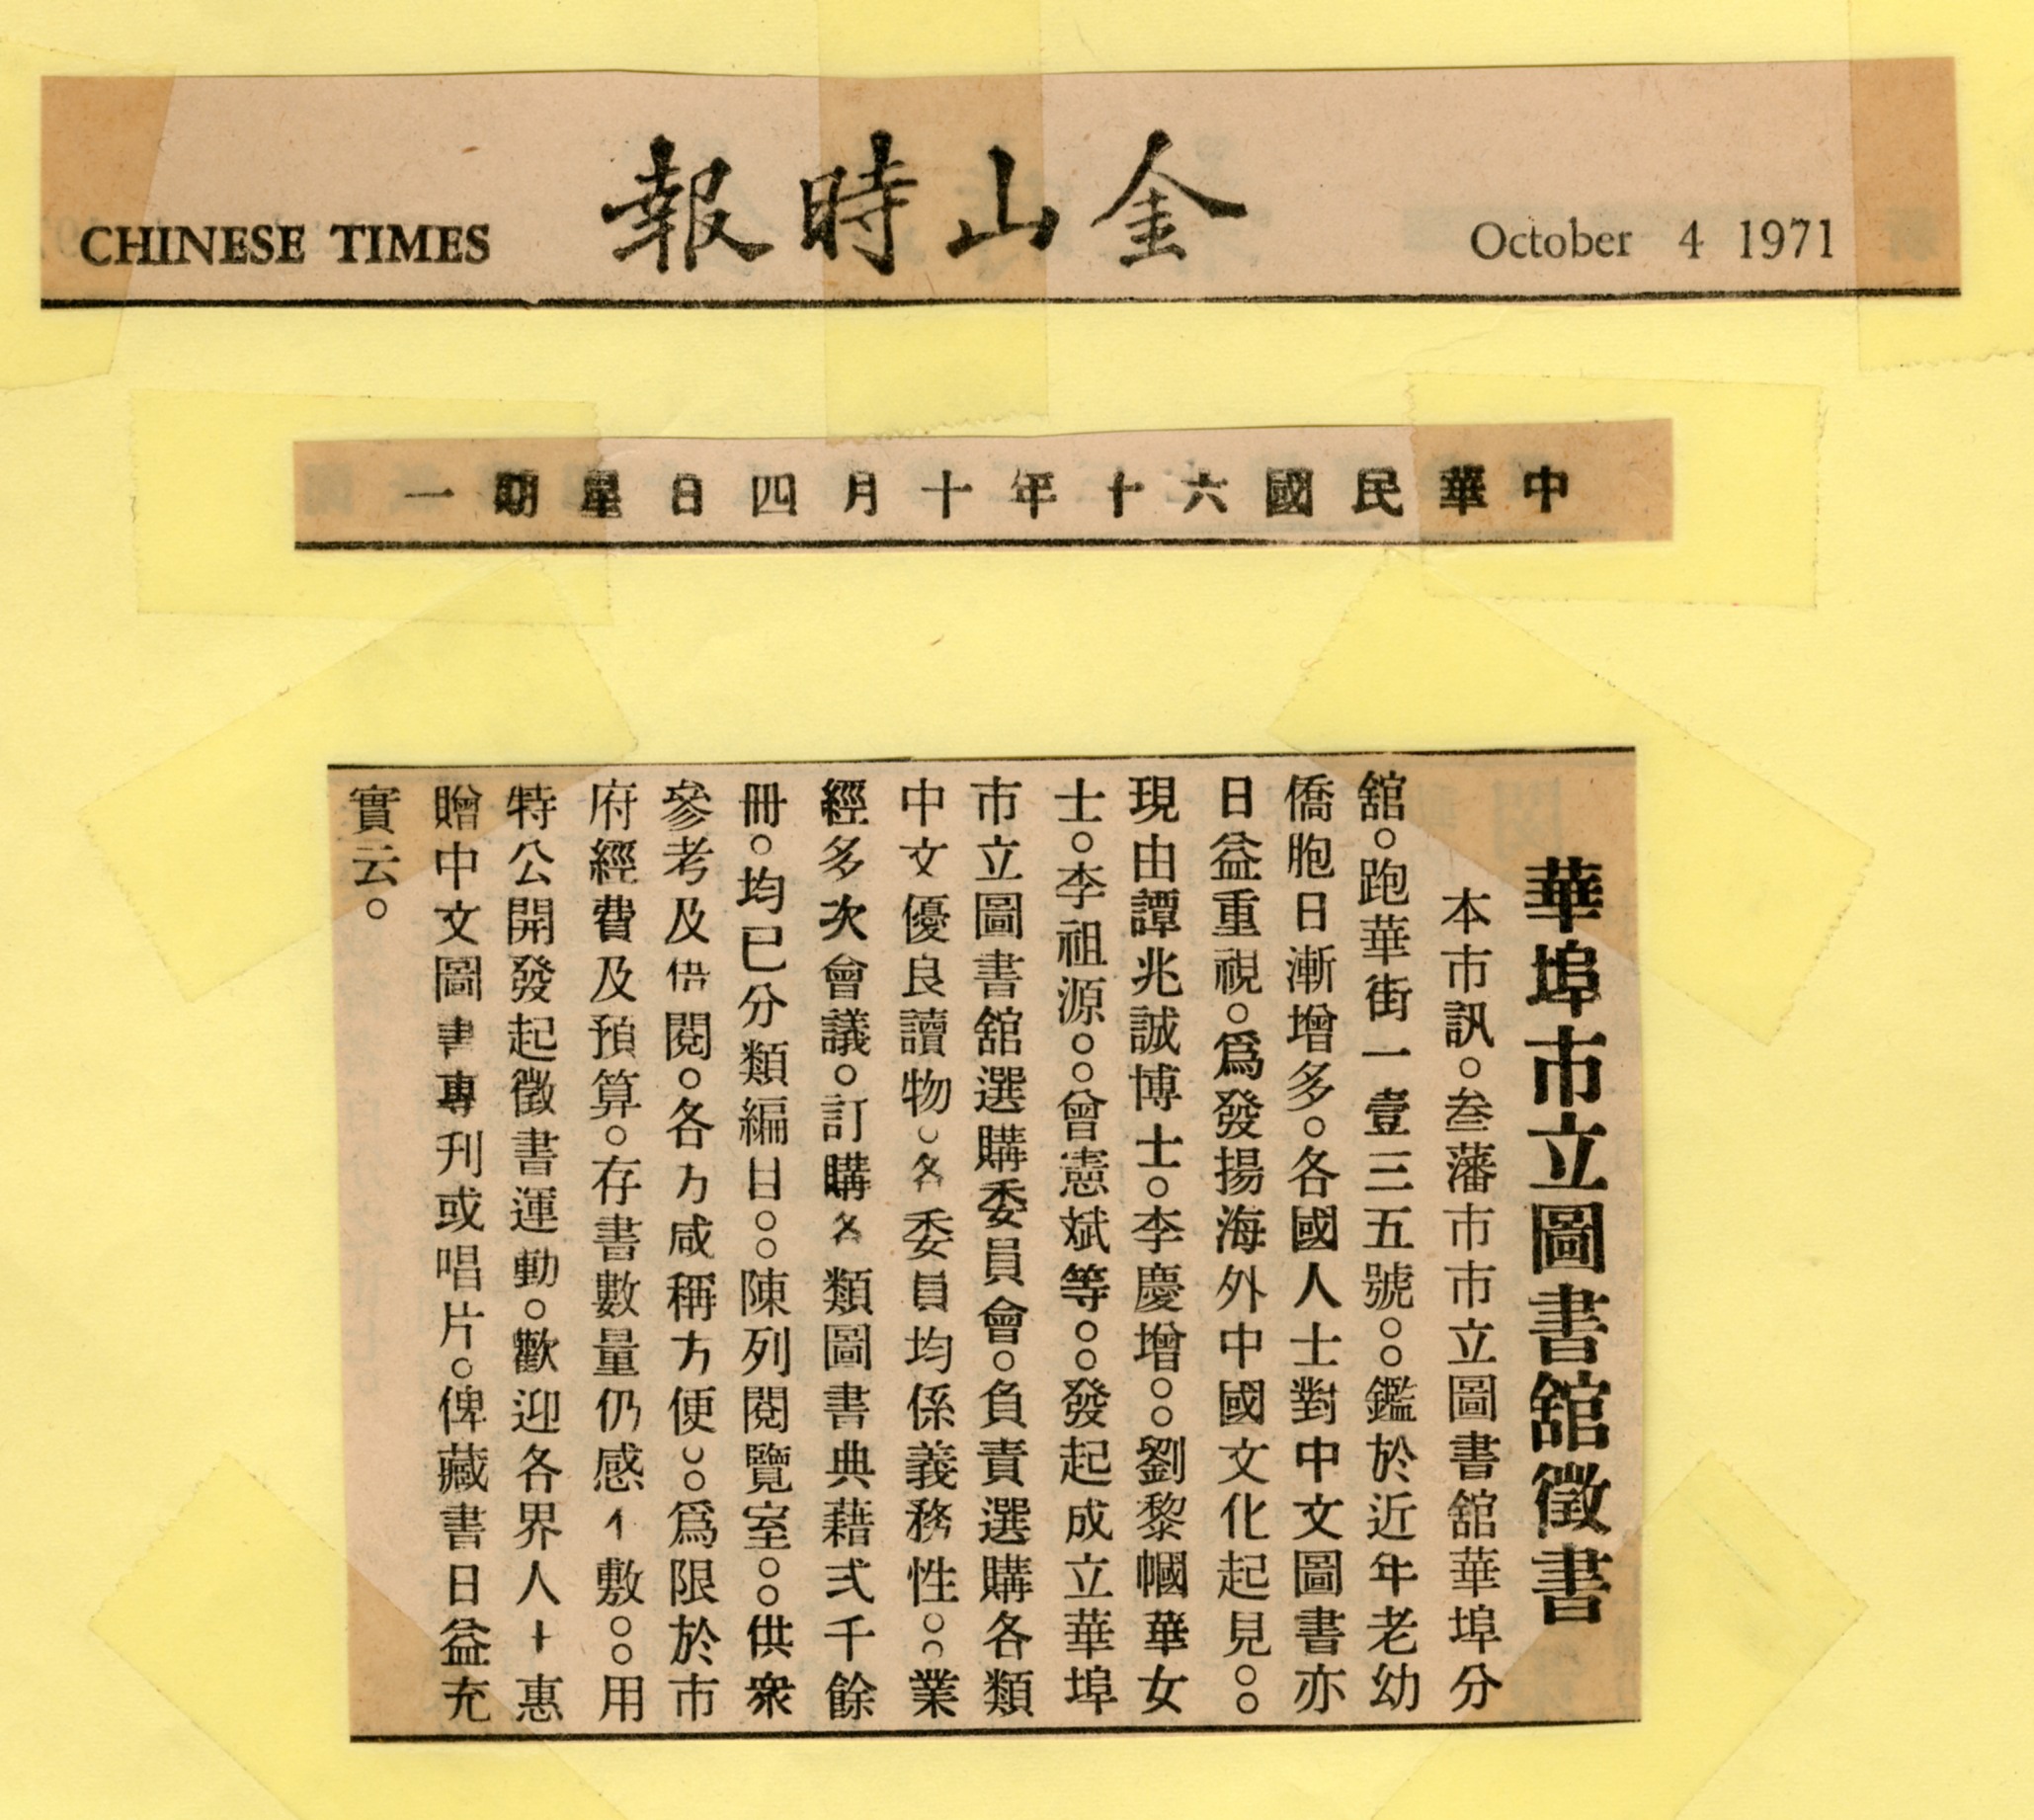 CHINESE TIMES
金山時報
October 4 1971
中華民國六十年十月四日星期一
華埠市立圖書舘徵書
本市訊。叁藩市市立圖書舘華埠分
舘。跑華街一壹三五號。。鑑於近年老幼
僑胞日漸增多。各國人士對中文圖書亦
日益重視。爲發揚海外中國文化起見。。
現由譚兆誠博士。李慶增。。劉黎幗華女
士。李祖源。。曾憲斌等。。發起成立華埠
市立圖書舘選購委員會。負責選購各類
中文優良讀物。各委員均係義務性。。業
經多次會議。訂購各類圖書典藉弍千餘
冊。均已分類編目。。陳列閱覽室。。供衆
參考及借閱。各方咸稱方便。。爲限於市
府經費及預算。存書數量仍感不敷。。用
特公開發起徵書運動。歡迎各界人士惠
贈中文圖書專刊或唱片。俾藏書日益充
實云。